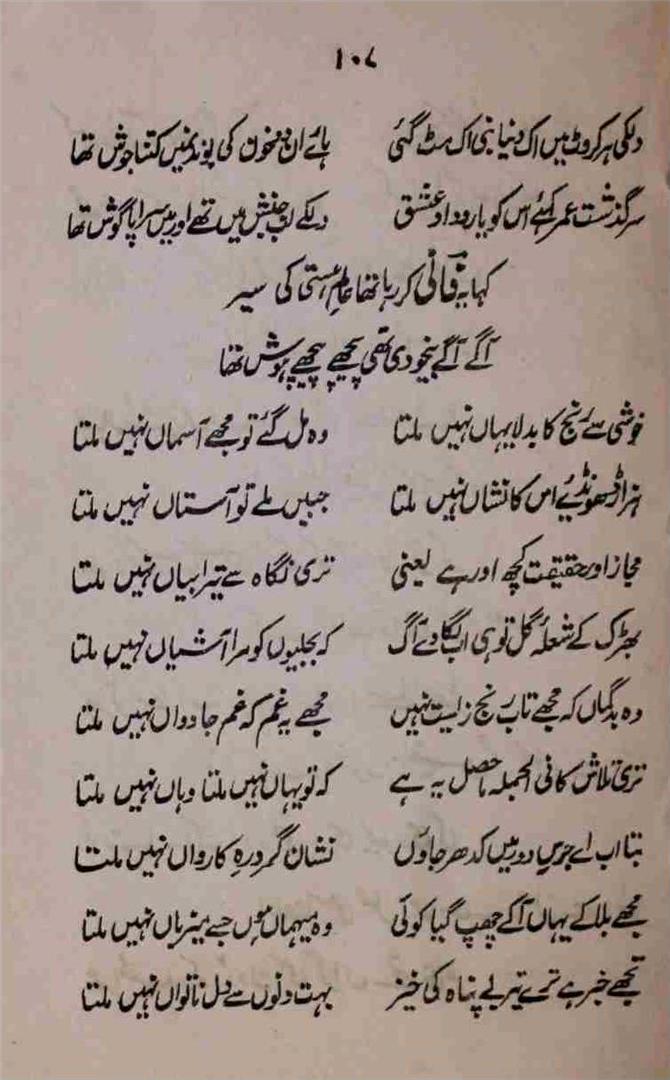 ۱۰۷
دلکی ہر کروٹ میں اک دنیا بنی اک مٹ گئی ہائے ان دو خون کی بوندیں کتنا جوش تھا
سرگذشت عمر کہئے اس کو یا روداد عشق دلکے لب جنبش میں تھے اور میں سراپا گوش تھا
کہا یہ فانی کر رہا تھا عالم ہستی کی سیر
آگے آگے بیخودی تھی پیچھے پیچھے ہوش تھا
خوشی سے رنج کا بدلا یہاں نہیں ملتا وہ مل گئے تو مجھے آسماں نہیں ملتا
ہزار ڈھونڈیے اس کا نشاں نہیں ملتا جبیں ملے تو آستاں نہیں ملتا
مجاز اور حقیقت کچھ اور ہے یعنی تری نگاہ سے تیرا بیاں نہیں ملتا
بھڑک کے شعلۂ گل تو ہی اب لگا دے آگ کہ بجلیوں کو مرا آشیاں نہیں ملتا
وہ بدگماں کہ مجھے تاب رنج زیست نہیں مجھے یہ غم کہ غم جاوداں نہیں ملتا
تری تلاش کا فی الجملہ ماحصل یہ ہے کہ تو یہاں نہیں ملتا وہاں نہیں ملتا
بتا اب اے جرس دور میں کدھر جاؤں نشان گرد رہ کارواں نہیں ملتا
مجھے بلا کے یہاں آکے چھپ گیا کوئی وہ میہماں ہوں جسے میزباں نہیں ملتا
تجھے خبر ہے ترے تیر بے پناہ کی خیر بہت دنوں سے دل ناتواں نہیں ملتا